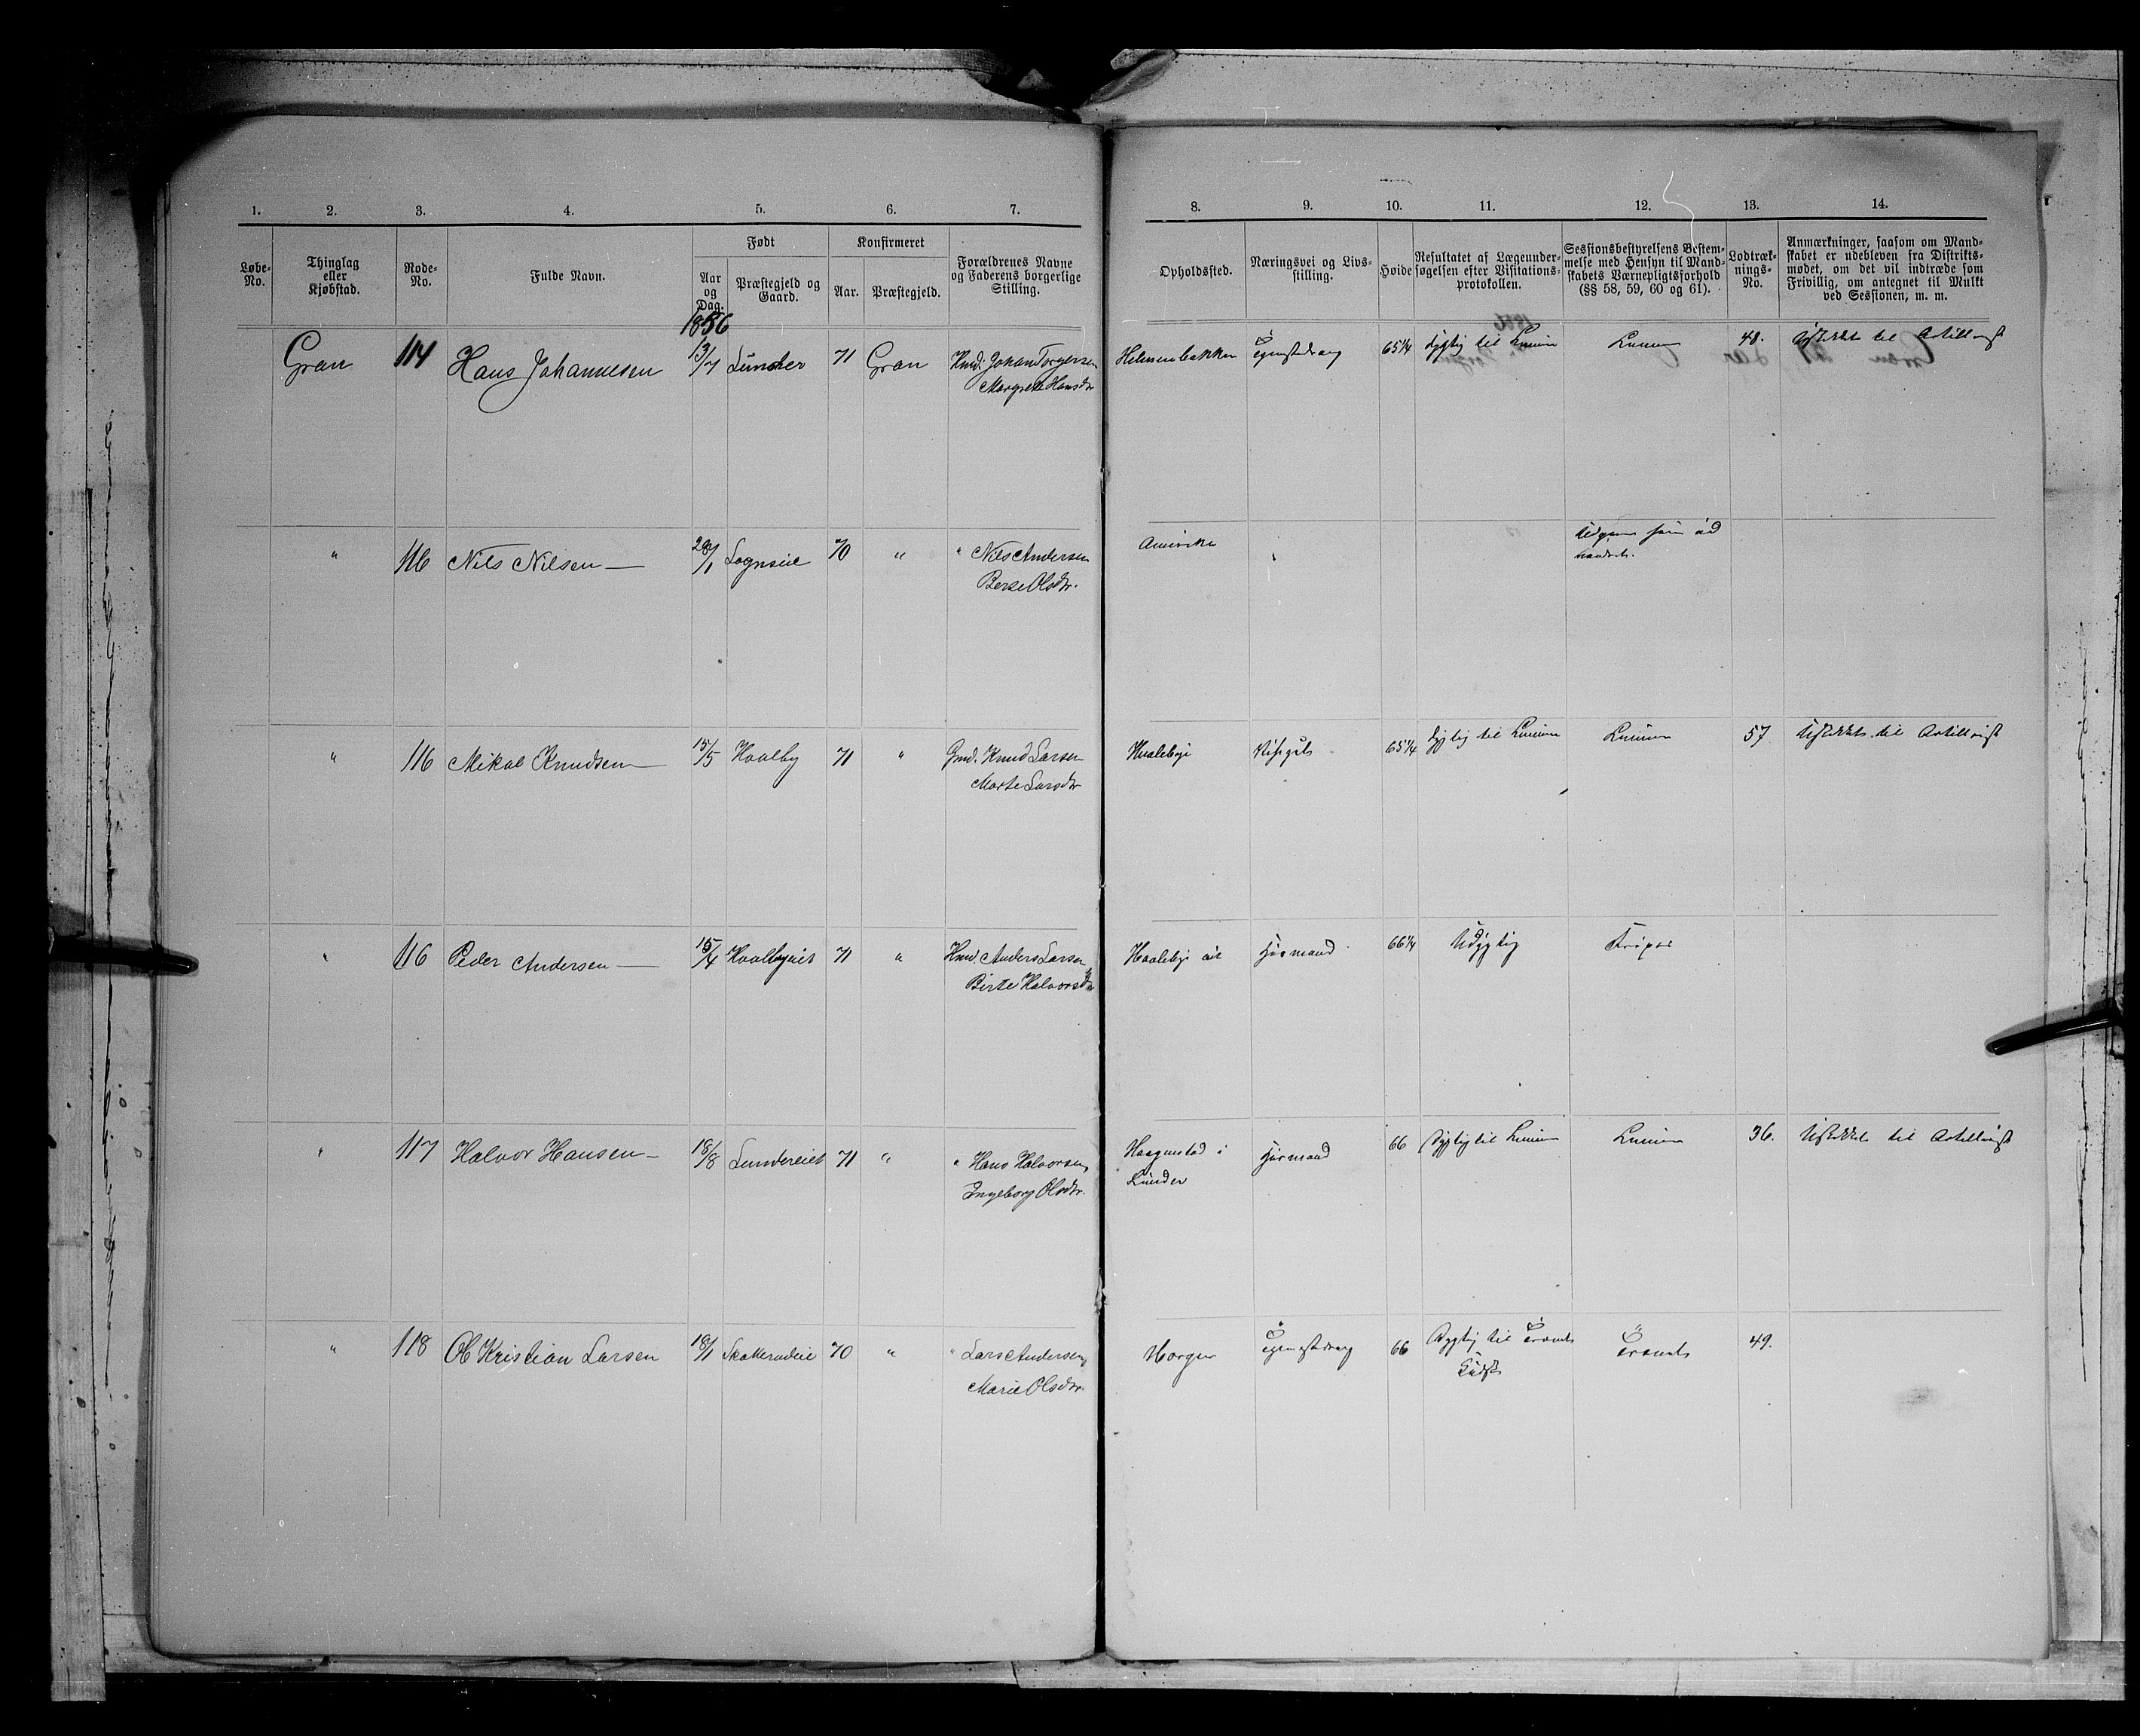 1. 2. 3. 4. 5. 6. 7.
Løbe-No. Thinglag eller Kjøbstad. Rode-No. Fulde Navn. Født Aar og Dag. Præstegjeld og Gaard. Konfirmeret Aar. Præstegjeld. Forældrenes Navne og Faderens borgerlige Stilling.
1856
Gran 114 Hans Johannesen 13/7 Lunder 71 Gran Hmd. Johan Torgersen
Margrete Hansdr
" 116 Nils Nilsen 28/1 Sognseie 70 " " Nils Andersen
Berte Olsdr.
" 116 Mikal Knudsen 15/5 Hvalby 71 " Gmd. Knud Larsen
Marte Larsdr
" 116 Peder Andersen 15/4 Hvalbyeiet 71 " Hmd Anders Larsen
Birte Halvorsdr
" 117 Halvor Hansen 18/8 Lundereiet 71 " " Hans Halvorsen,
Ingeborg Olsdr.
" 118 Ole Kristian Larsen 18/1 70 " " Lars Andersen,
Marie Olsdr.
8. 9. 10. 11. 12. 13. 14.
Opholdssted. Næringsvei og Livsstilling. Høide Resultatet af Lægeundersøgelsen efter Visitationsprotokollen. Sessionsbestyrelsens Bestemmelse med Hensyn til Mandskabets Værnepligtsforhold (§§ 58, 59, 60 og 61). Lodtræknings-No. Anmærkninger, saasom om Mandskabet er udebleven fra Distriktsmødet, om det vil indtræde som Frivillig, om antegnet til Mulkt ved Sessionen, m. m.
Helmenbakken 65 1/4 Dygtig til Linien Linien 48. Udskrevet til Artillerist
Amerika
Hvaleby 65 1/4 Dygtig til Linien Linien 57 Udskrevet til Artillerist
Hvaleby eie Husmand 66 1/4 Udygtig
Haagenstad i
Lunder Husmand 66 Dygtig til Linien Linien 36. Udskrevet til Artillerist
Horgen 66 Dygtig til Trænet
Trænet 49.